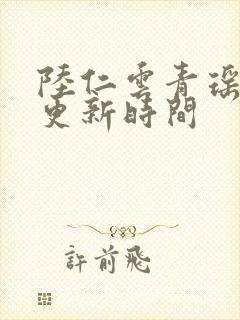 陸仁雲青瑶
更新時間
許前飛